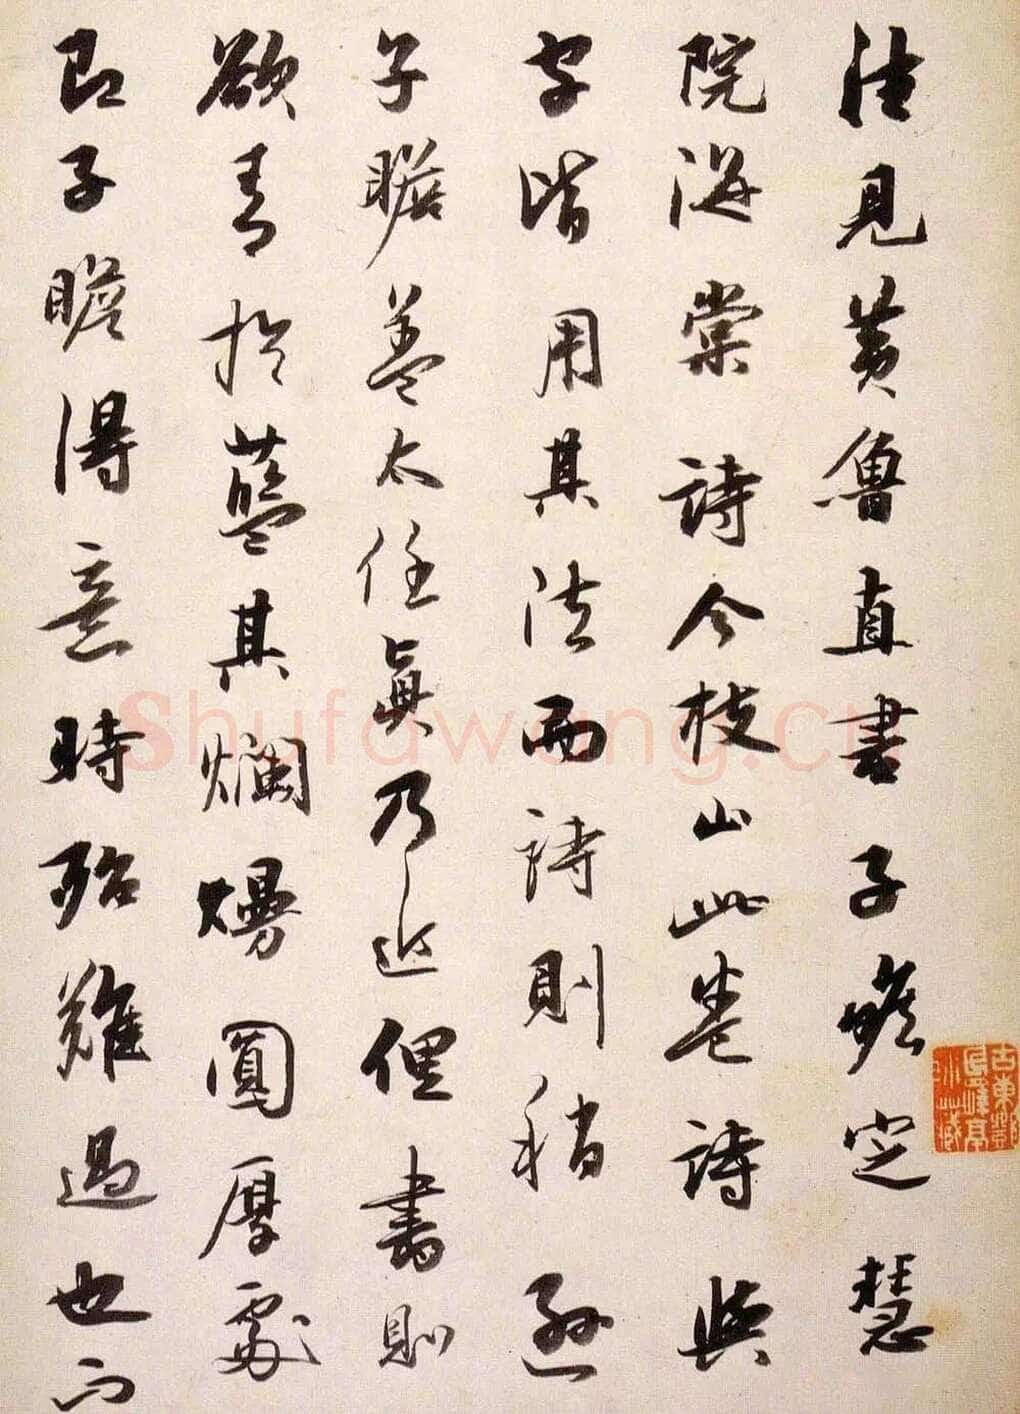 往見黃魯直書子瞻定慧
院海棠詩今枝山此卷詩與
字皆用其法而詩則稍遜
子瞻蓋太任真乃近俚書則
欲青於藍其爛熳圓厚處
即子瞻得意時殆難過也
Shufawang.cn